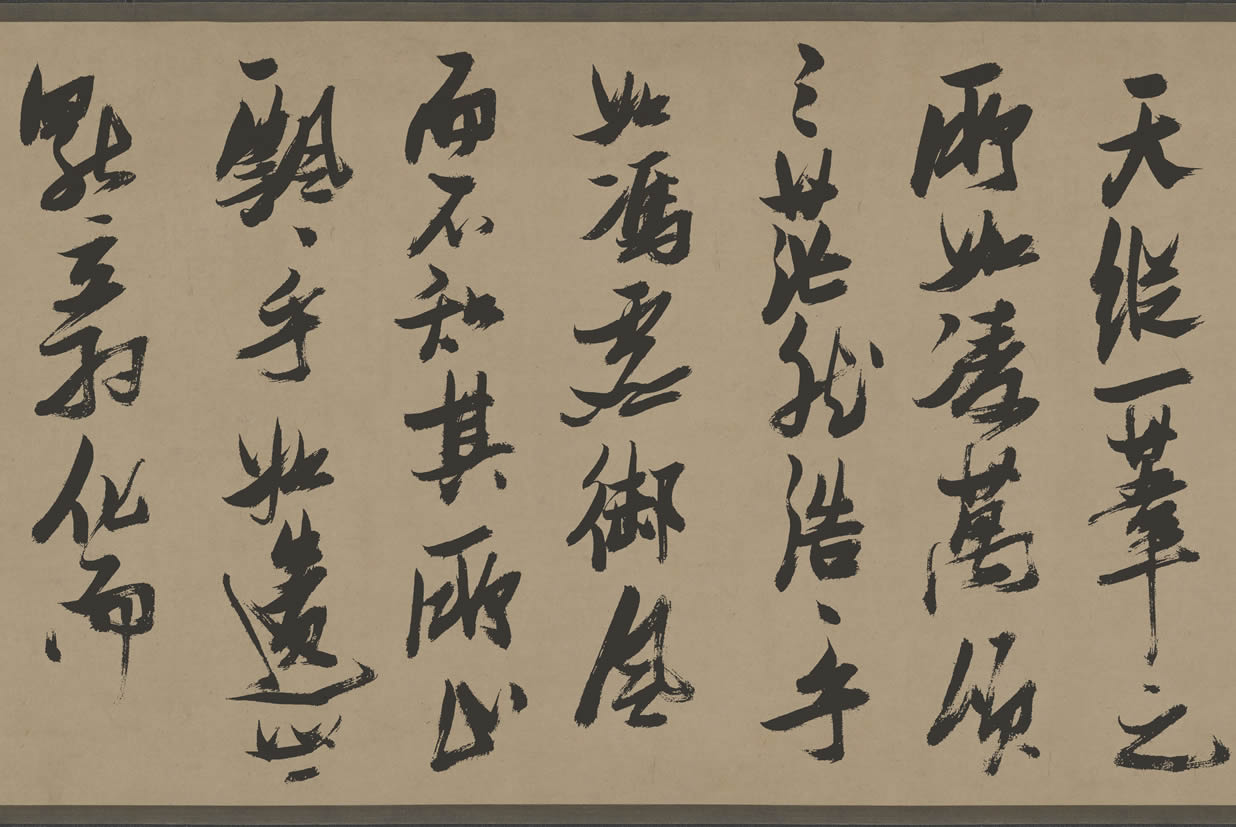 天縱一葦之
所如凌萬頃
之茫然浩〻乎
如馮虛御風
而不知其所止
飄〻乎如遺世
獨立羽化而